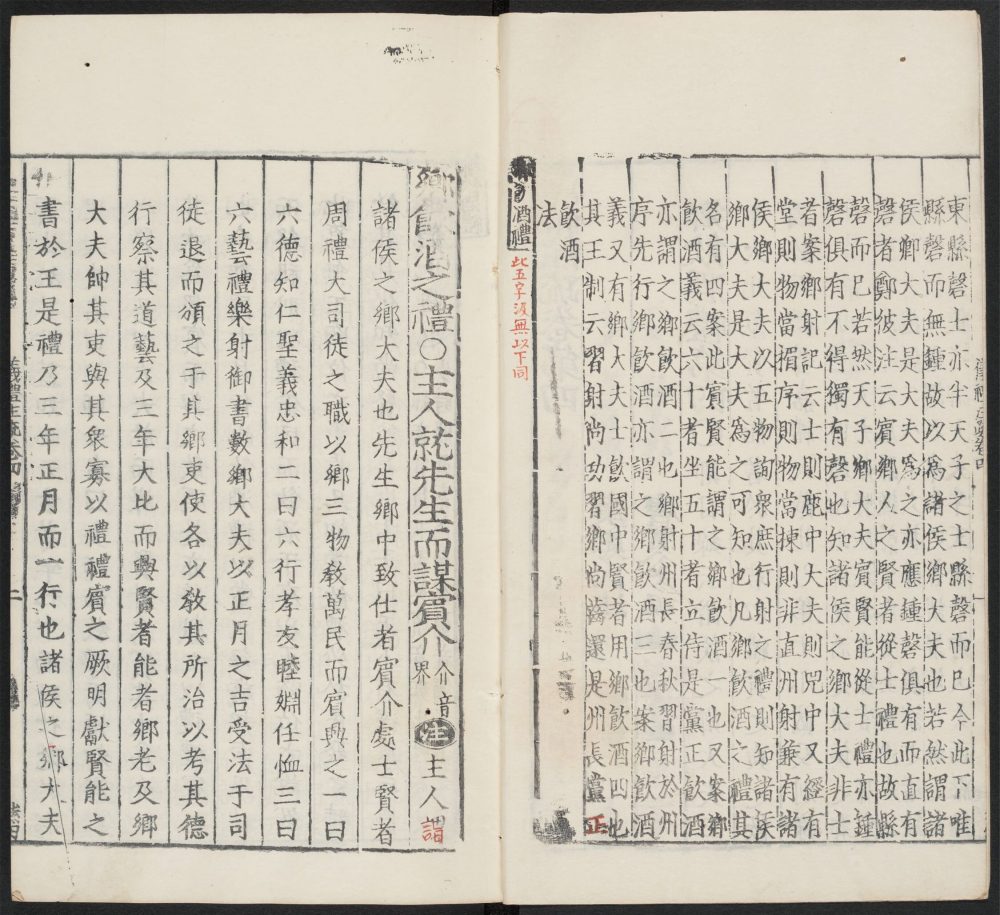 東縣磬士亦半天子之士縣磬而已今此下唯
縣磬而無鍾故以爲諸侯鄉大夫也若然謂諸
侯鄉大夫是大夫爲之亦應鍾磬俱有而直有
磬者鄭彼注云賓鄉人之賢者從士禮也故縣
磬而已若然天子鄉大夫賓賢能從士禮亦鍾
磬俱有不得獨有磬也知諸侯之鄉大夫非士
者案鄉射記云士則鹿中大夫則兕中又經有
堂則物當楣序則物當棟則非直州射兼有諸
侯鄉大夫以五物詢衆庶行射之禮則知諸侯
鄉大夫是大夫爲之可知也凡鄉飲酒之禮其
名有四案此賓賢能謂之鄉飲酒一也又案鄉
飲酒義云六十者坐五十者立侍是黨正飲酒
亦謂之鄉飲酒二也鄉射州長春秋習射於州
序先行鄉飲酒亦謂之鄉飲酒三也案鄉飲酒
義又有鄉大夫士飲國中賢者用鄉飲酒四也
其王制云習射尚功習鄉尚齒還是州長黨正
飲酒
法
酒禮
此五字汲無以下同
鄉飲酒之禮〇主人就先生而謀賓介介音界注主人謂
諸侯之鄉大夫也先生鄉中致仕者賓介處士賢者
周禮大司徒之職以鄉三物敎萬民而賓興之一曰
六德知仁聖義忠和二曰六行孝友睦婣任恤三曰
六藝禮樂射御書數鄉大夫以正月之吉受法于司
徒退而頒之于其鄉吏使各以敎其所治以考其德
行察其道藝及三年大比而興賢者能者鄉老及鄉
大夫帥其吏與其衆寡以禮禮賓之厥明獻賢能之
書於王是禮乃三年正月而一行也諸侯之鄉大夫
儀禮注疏卷四
二